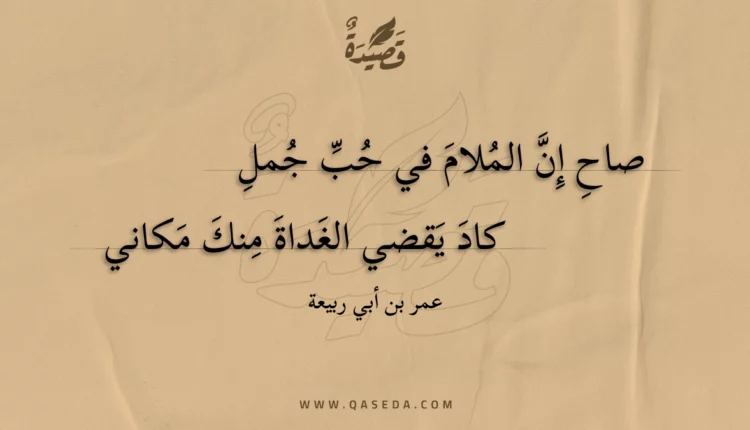 قَصِيدَةٌ
صاحِ إِنَّ المُلامَ في حُبِّ جُملِ
كادَ يَقضي الغَداةَ مِنكَ مَكاني
عمر بن أبي ربيعة
WWW.QASEDA.COM